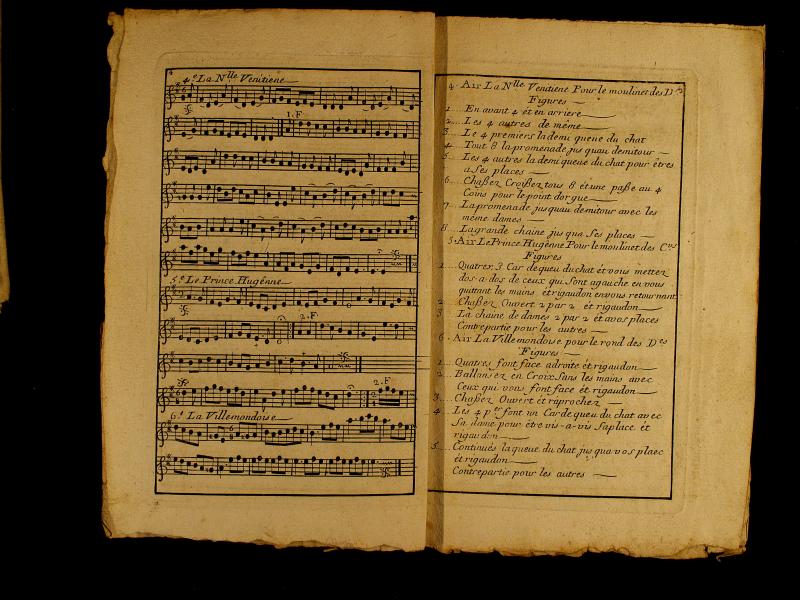 4
4.e La Nlle Venitiene
1.F
5.e Le Prince Hugénne
2.F
2.F
6.e La Villemondoise
4. Air La Nlle Venitiene Pour le moulinet des D.es
Figures
1... En avant 4 et en arriere
2... Les 4 autres de même
3... Le 4 premiers la demi queue du chat
4... Tout 8 la promenade jus quau demitour
5... Les 4 autres la demi queue du chat pour êtres
a Ses places
6... Chaßez Croißez tous 8 et une paße au 4
Coins pour le point dorgue
7... La promenade jusquau demitour avec les
même dames
8... La grande chaine jus qua Ses places
5. Air Le Prince Hugénne Pour le moulinet des C.ers
Figures
1... Quatrex 3 Car de queu du chat et vous mettez
dos-a-dos de ceux qui Sont agauche en vous
quittant les mains et rigaudon en vous retournant
2... Chaßez Ouvert 2 par 2 et rigaudon
3 La chaine de dames 2 par 2 et avos places
Contrepartie pour les autres
6. Air La Villemondoise pour le rond des D.es
Figures
1... Quatres font face adroite et rigaudon
2... Ballansez en Croix Sans les mains avec
Ceux qui vous font face et rigaudon
3... Chaßez Ouvert et raprochez
4. Les 4 p.er font un Car de queu du chat avec
Sa dame pour être vis-a-vis Saplace et
rigaudon
5... Continués la queue du chat jus qua vos plaec
et rigaudon
Contrepartie pour les autres